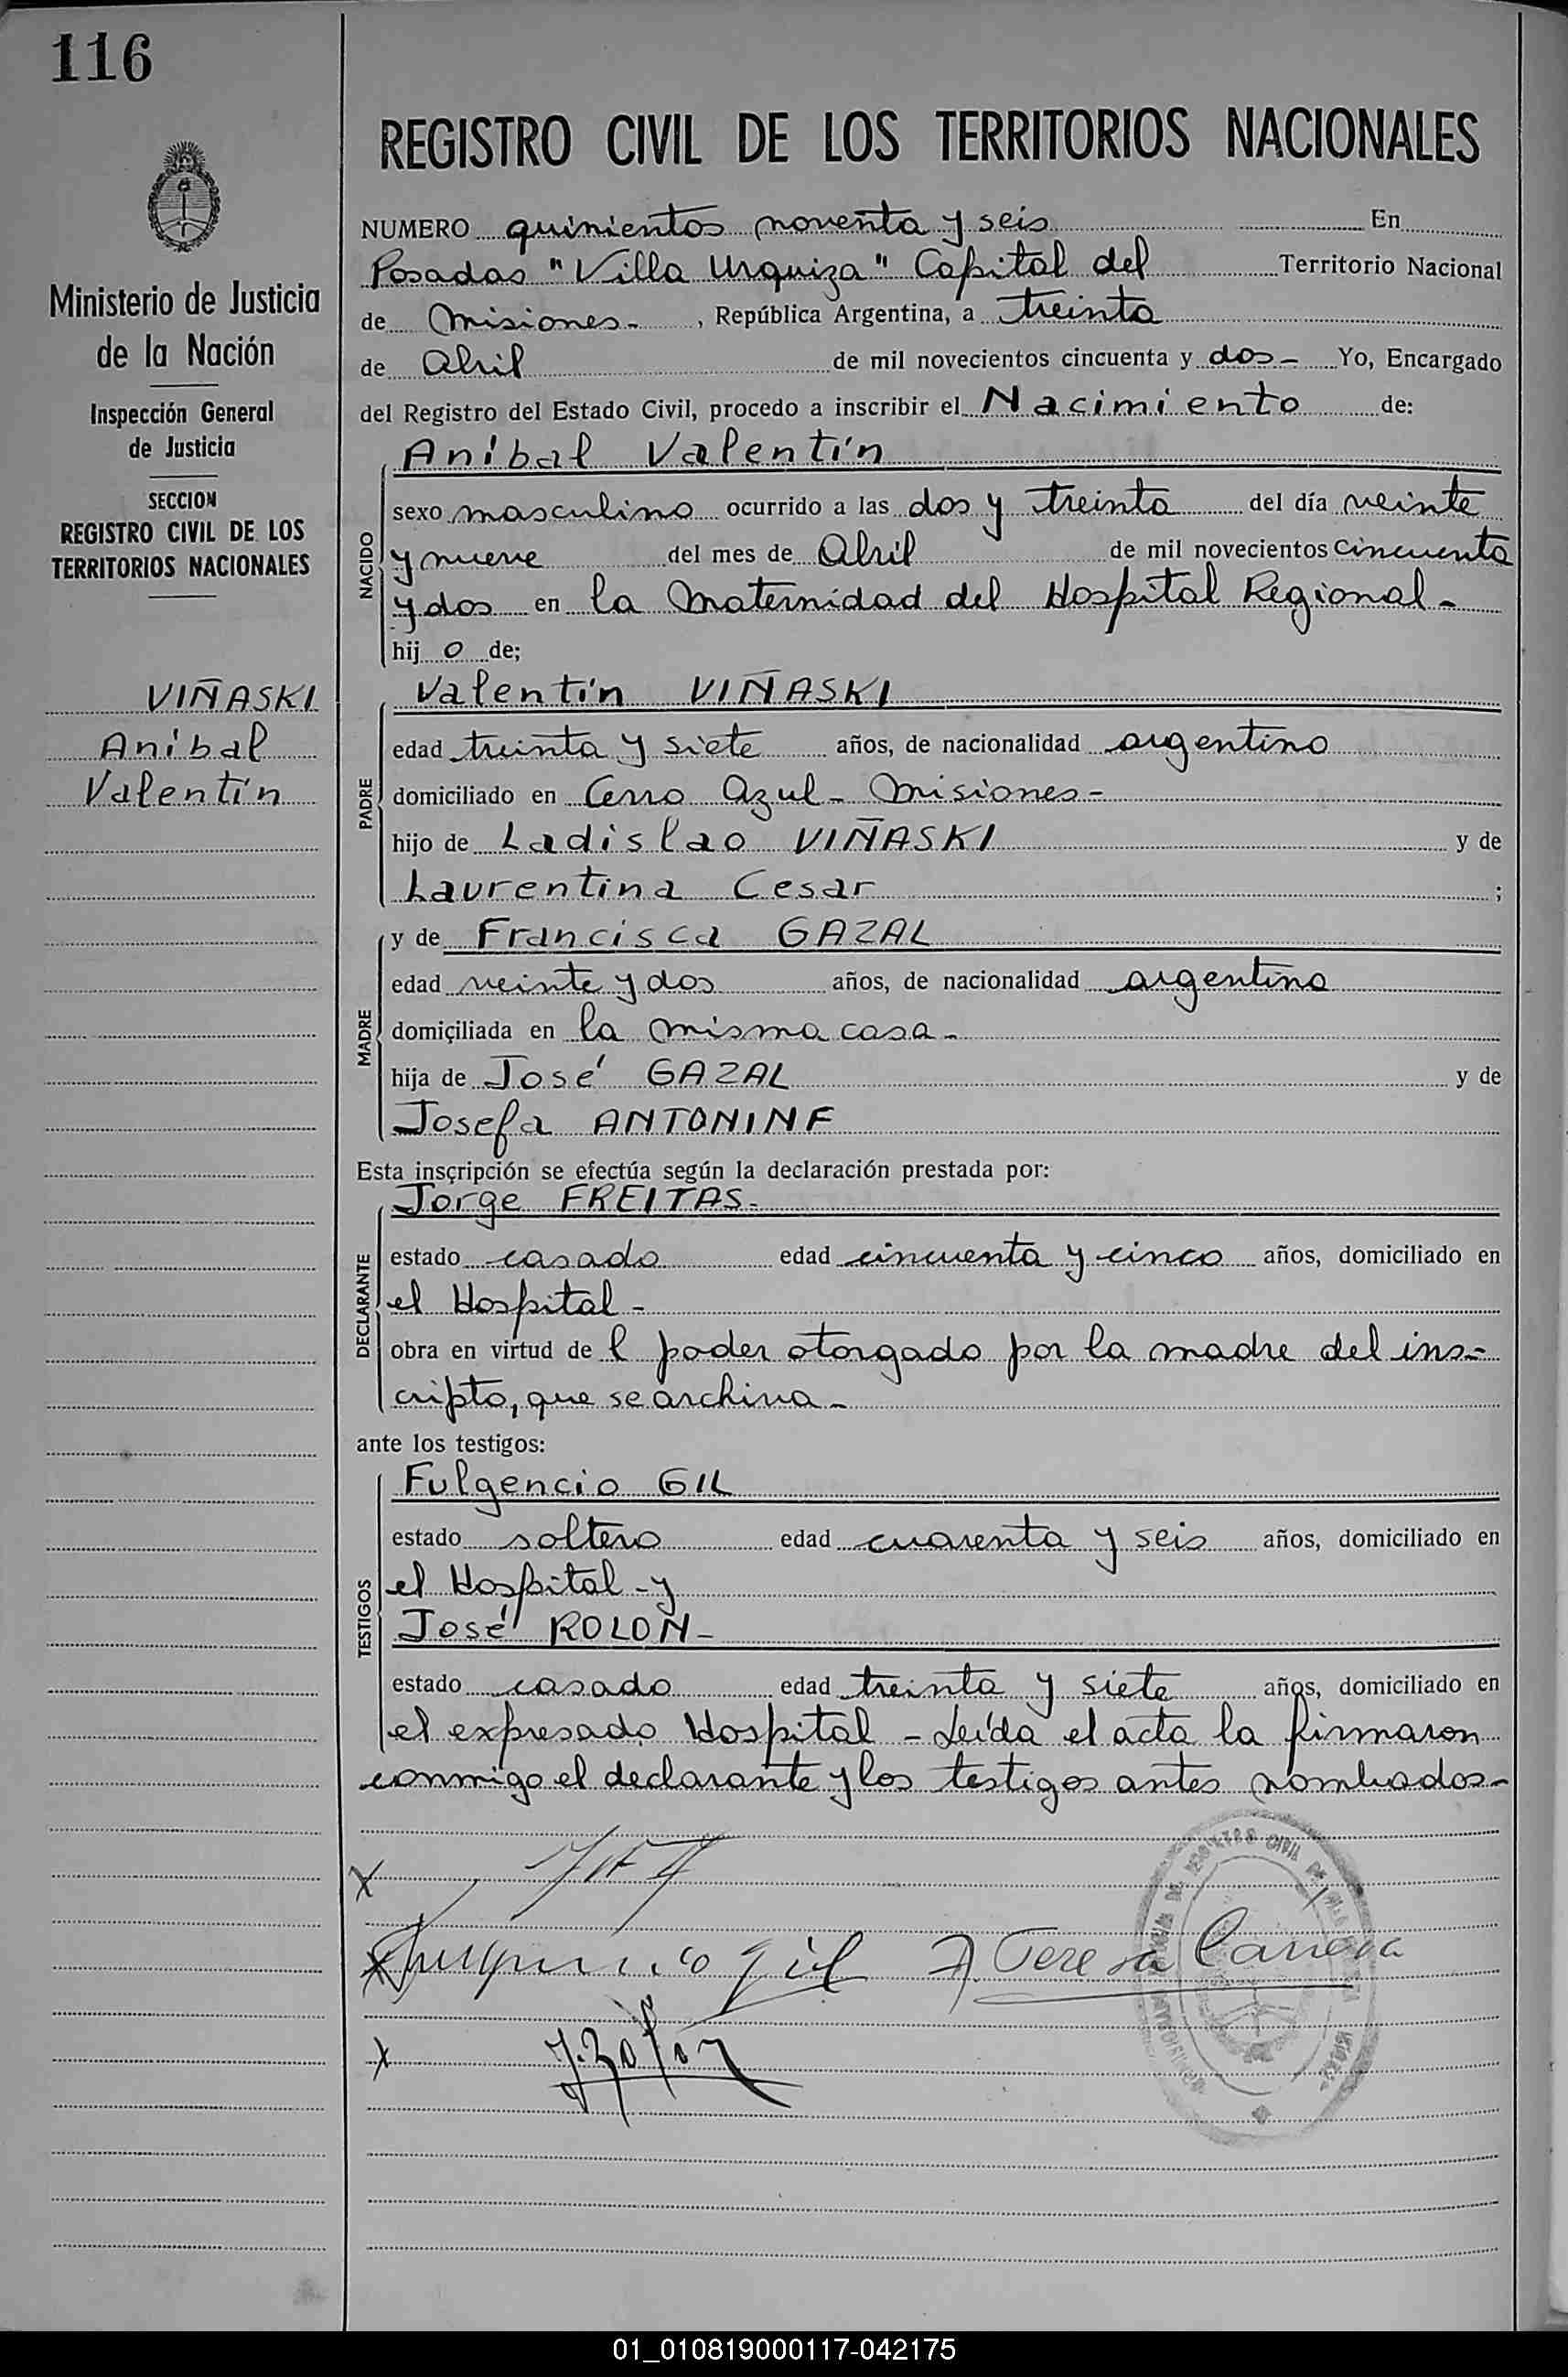 116
Ministerio de Justicia
de la Nación
Inspección General
de Justicia
SECCION
REGISTRO CIVIL DE LOS
TERRITORIOS NACIONALES
VIÑASKI
Aníbal
Valentín
REGISTRO CIVIL DE LOS TERRITORIOS NACIONALES
NUMERO quinientos noventa y seis En
Posadas "Villa Urquiza" Capital del Territorio Nacional
de Misiones-, República Argentina, a treinta
de Abril de mil novecientos cincuenta y dos- Yo, Encargado
del Registro del Estado Civil, procedo a inscribir el Nacimiento de:
Aníbal Valentín
NACIDO
sexo masculino ocurrido a las dos y treinta del día veinte
y nueve del mes de Abril de mil novecientos cincuenta
y dos en la Maternidad del Hospital Regional-
hij o de;
Valentín VIÑASKI
PADRE
edad treinta y siete años, de nacionalidad argentino
domiciliado en Cerro Azul- Misiones-
hijo de Ladislao VIÑASKI y de
Laurentina Cesar;
y de Francisca GAZAL
MADRE
edad veinte y dos años, de nacionalidad argentina
domiciliada en la misma casa-
hija de José GAZAL y de
Josefa ANTONINF
Esta inscripción se efectúa según la declaración prestada por:
Jorge FREITAS-
DECLARANTE
estado casado edad cincuenta y cinco años, domiciliado en
el Hospital-
obra en virtud de l poder otorgado por la madre del ins-
cripto, que se archiva-
ante los testigos:
Fulgencio GIL
TESTIGOS
estado soltero edad cuarenta y seis años, domiciliado en
el Hospital-y
José ROLON-
estado casado edad treinta y siete años, domiciliado en
el expresado Hospital - Leída el acta la firmaron
conmigo el declarante y los testigos antes nombrados-
X
X Fulgencio gil A. Teresa
X J. Rolon
01_010819000117-042175